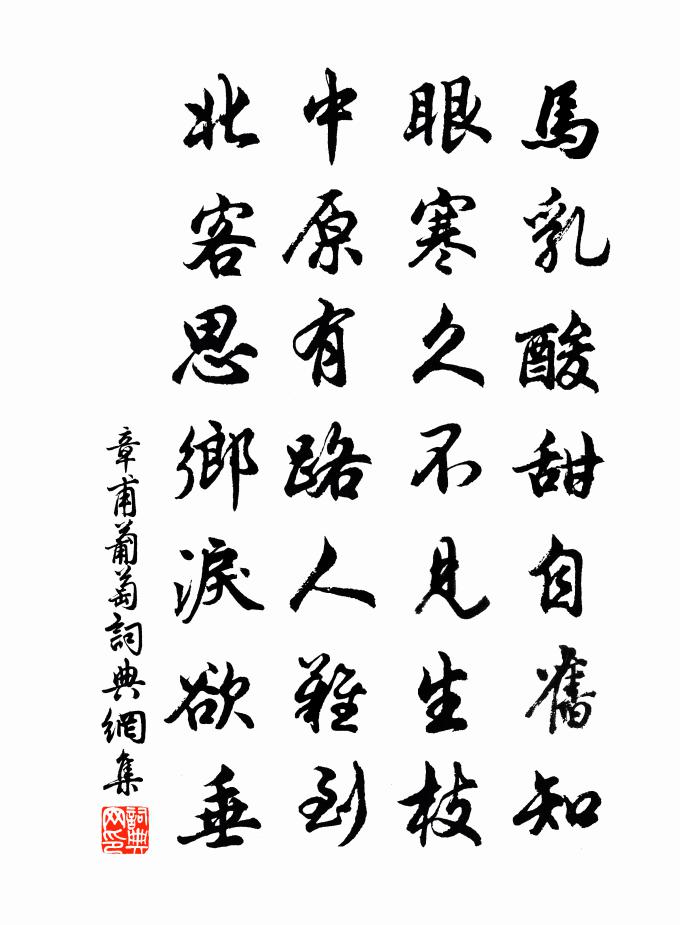 馬乳酸甜自舊知
眼寒久不見生枝
中原有路人難到
北客思鄉淚欲垂
章甫葡萄詞典網集
詞典网印